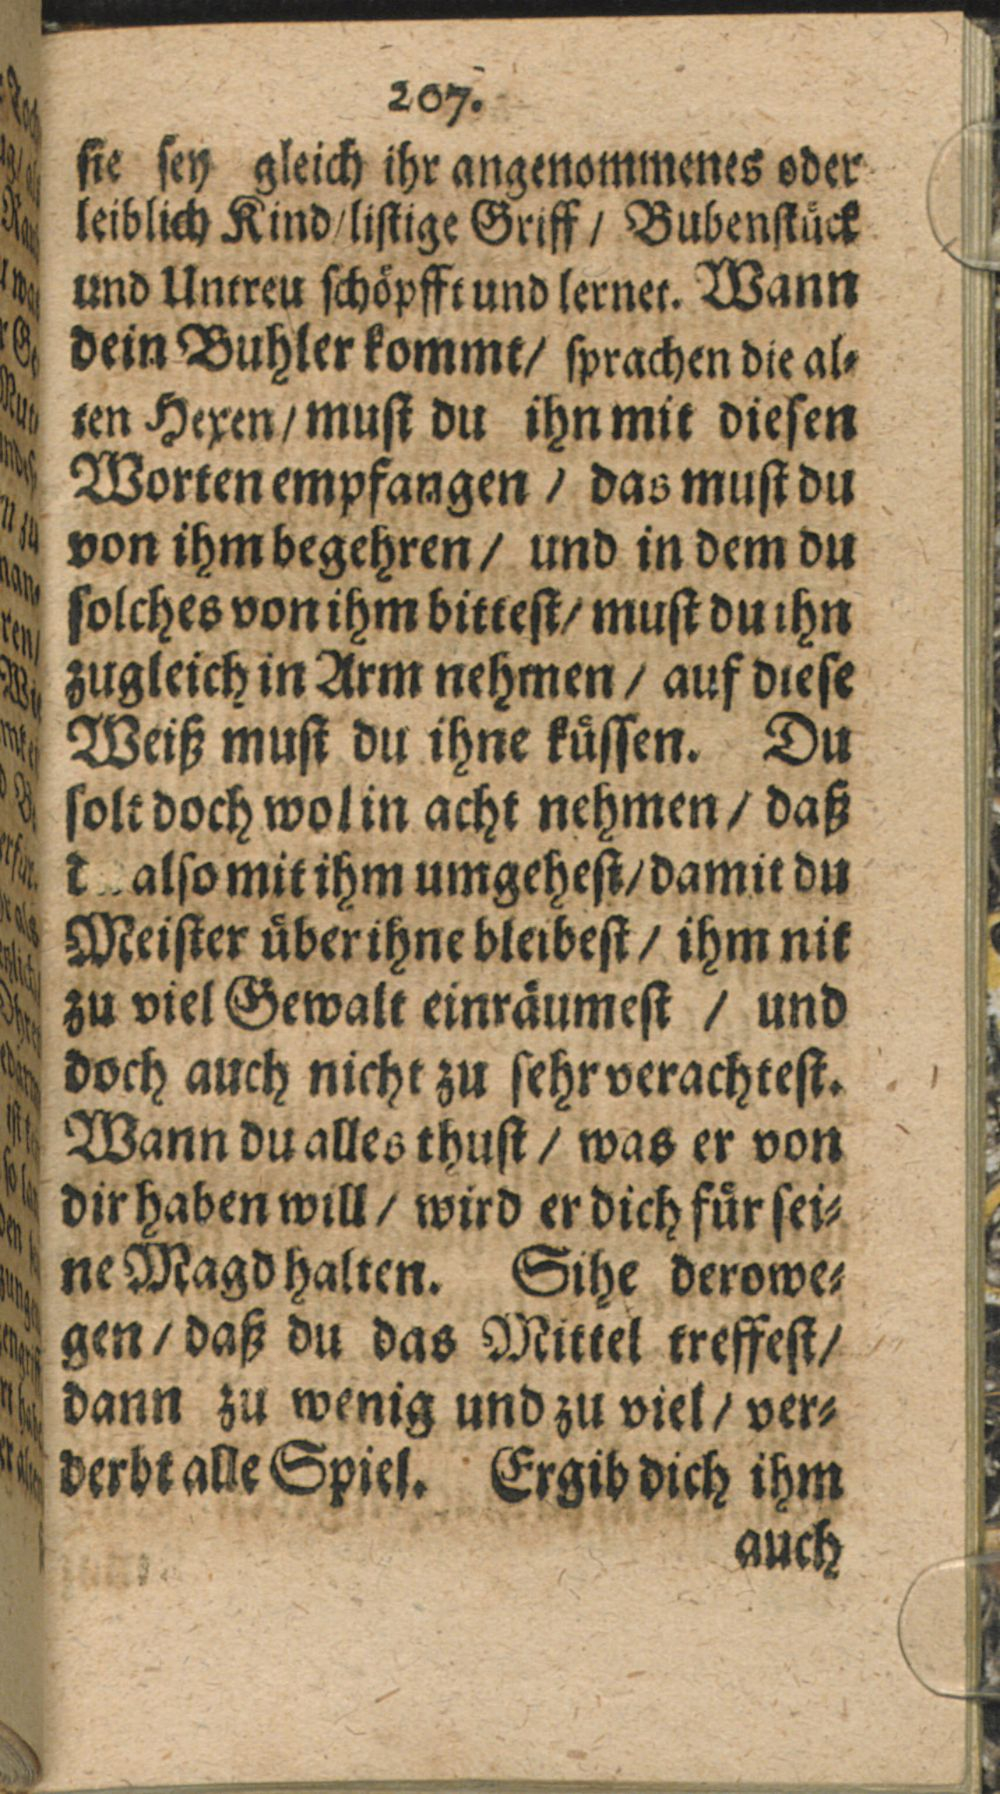 207.
sie sey gleich ihr angenommenes oder
leiblich Kind / listige Griff / Bubenstück
und Untreu schöpfft und lernet. Wann
dein Buhler kommt / sprachen die al-
ten Hexen / must du ihn mit diesen
Worten empfangen / das must du
von ihm begehren / und in dem du
solches von ihm bittest / must du ihn
zugleich in Arm nehmen / auf diese
Weiß must du ihne küssen. Du
solt doch wol in acht nehmen / daß
also mit ihm umgehest / damit du
Meister über ihne bleibest / ihm nit
zu viel Gewalt einräumest / und
doch auch nicht zu sehr verachtest.
Wann du alles thust / was er von
dir haben will / wird er dich für sei-
ne Magd halten. Sihe derowe-
gen / daß du das Mittel treffest /
dann zu wenig und zu viel / ver-
derbt alle Spiel. Ergib dich ihm
auch